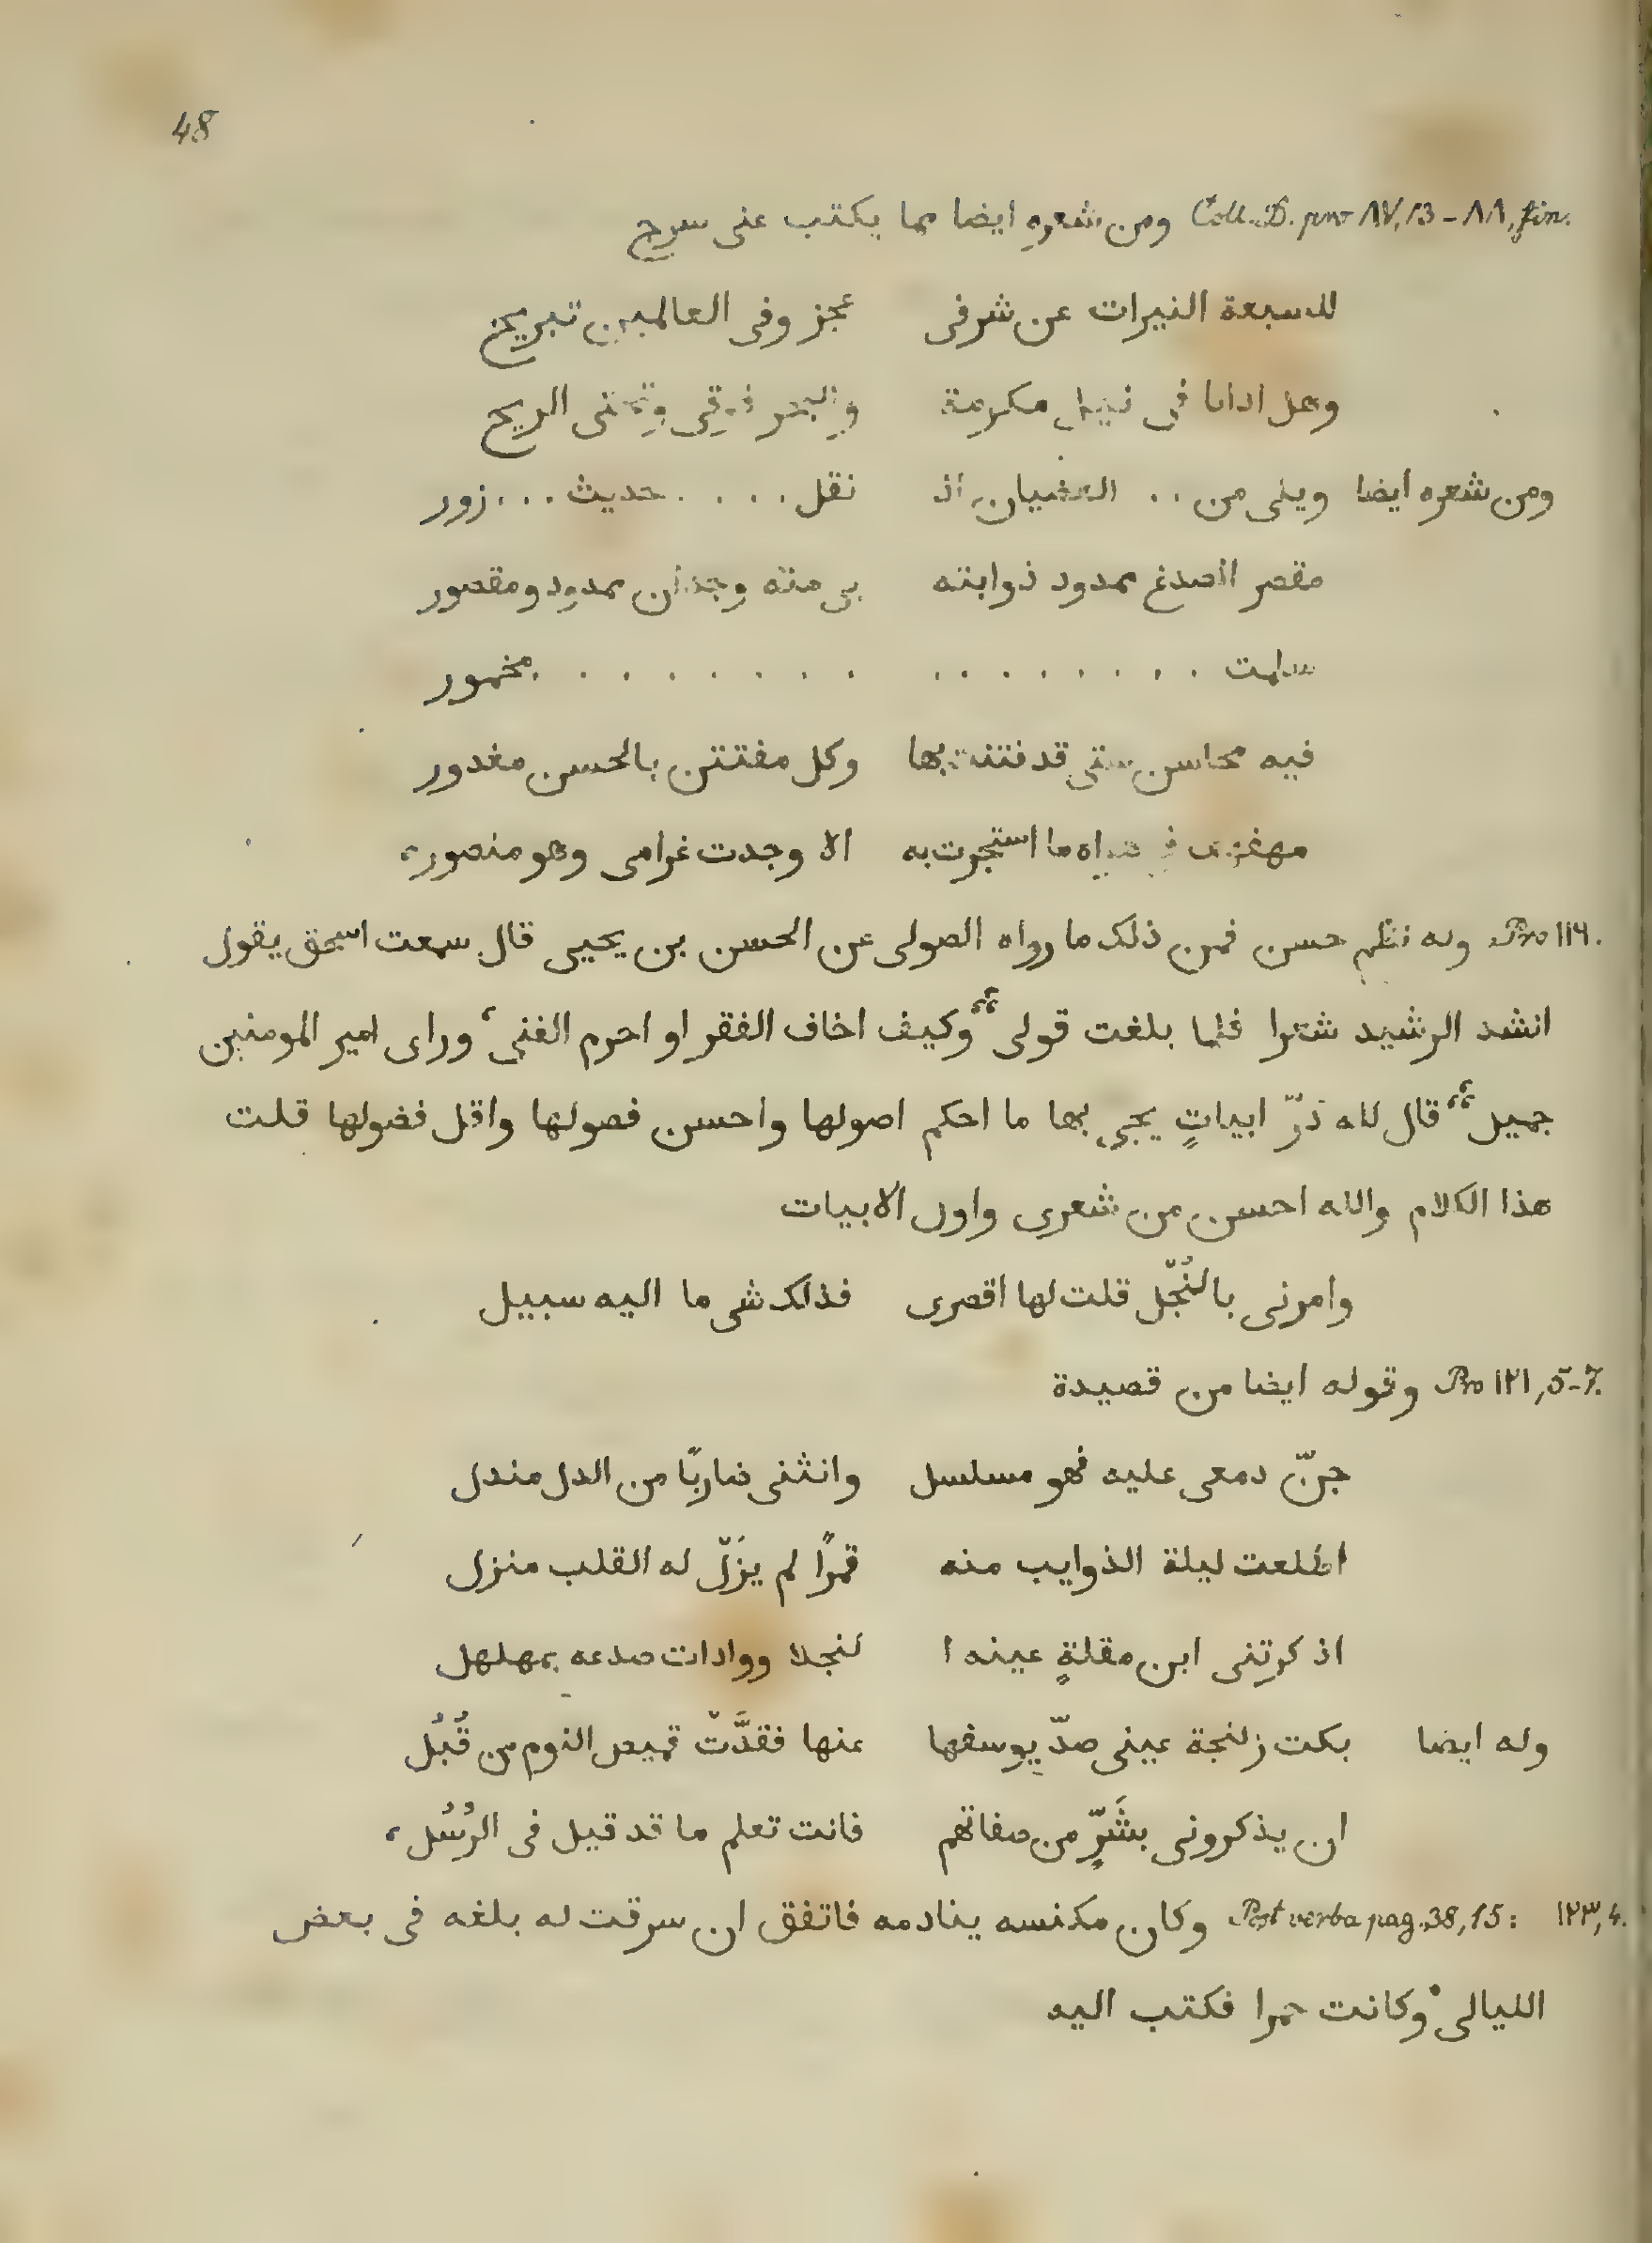 48
Coll. D. pro ٨٧, 13 - ٨٨, fin. ومن شعره ايضا مما يكتب على سرج
للسبعة النيرات عن شرفى عجز وفى العالمين تبريح
وهل ادانا فى نيل مكرمة والبحر فوقى وتحتى الريح
ومن شعره ايضا ويلى من .. الغضبان اذ نقل .... حديث ... زور
مقصر الصدغ ممدود ذوابته بى منه وجدان ممدود ومقصور
سلمت ........ ........ مخمور
فيه محاسن شتى قد فتنت بها وكل مفتتن بالحسن مغدور
فى هواه ما استجرت به الا وجدت غرامى وهو منصور،
Pro ١١٩. وله نظم حسن فمن ذلك ما رواه الصولى عن الحسن بن يحيى قال سمعت اسحق يقول
انشد الرشيد شعرا فلما بلغت قولى “وكيف اخاف الفقر او احرم الغنى، وراى امير المومنين
جميل“ قال لله درّ ابياتٍ يجى بها ما احكم اصولها واحسن فصولها واقل فضولها قلت
هذا الكلام والله احسن من شعرى واول الابيات
وامرنى بالنُجّل قلت لها اقصرى فذلك شى ما اليه سبيل
Pro ١٢١, 5-7. وقوله ايضا من قصيدة
جنّ دمعى عليه فهو مسلسل وانثنى ضاربًا من الدل مندل
اطلعت ليلة الذوايب منه قمرًا لم يزَلّ له القلب منزل
اذ كرتنى ابن مقلةٍ عينه ا لنجلا وواوات صدعه بمهلهل
وله ايضا بكت زلنجة عينى صدّ يوسفها عنها فقدَّتّ قميص النوم من قُبُل
ان يذكرونى بشَرٍّ من صفاتهم فانت تعلم ما قد قيل فى الرُسُل،
١٢٣, 4. Post verba pag. 38, 15: وكان مكنسه ينادمه فاتفق ان سرقت له بلغه فى بعض
الليالى وكانت حمرا فكتب اليه